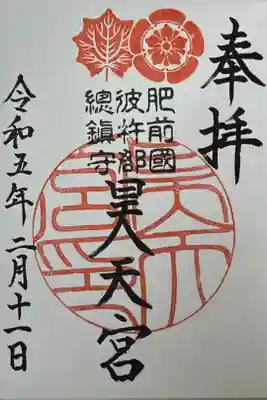 奉拝
肥前國
彼杵郡
總鎮守
昊天宮
令和五年二月十一日